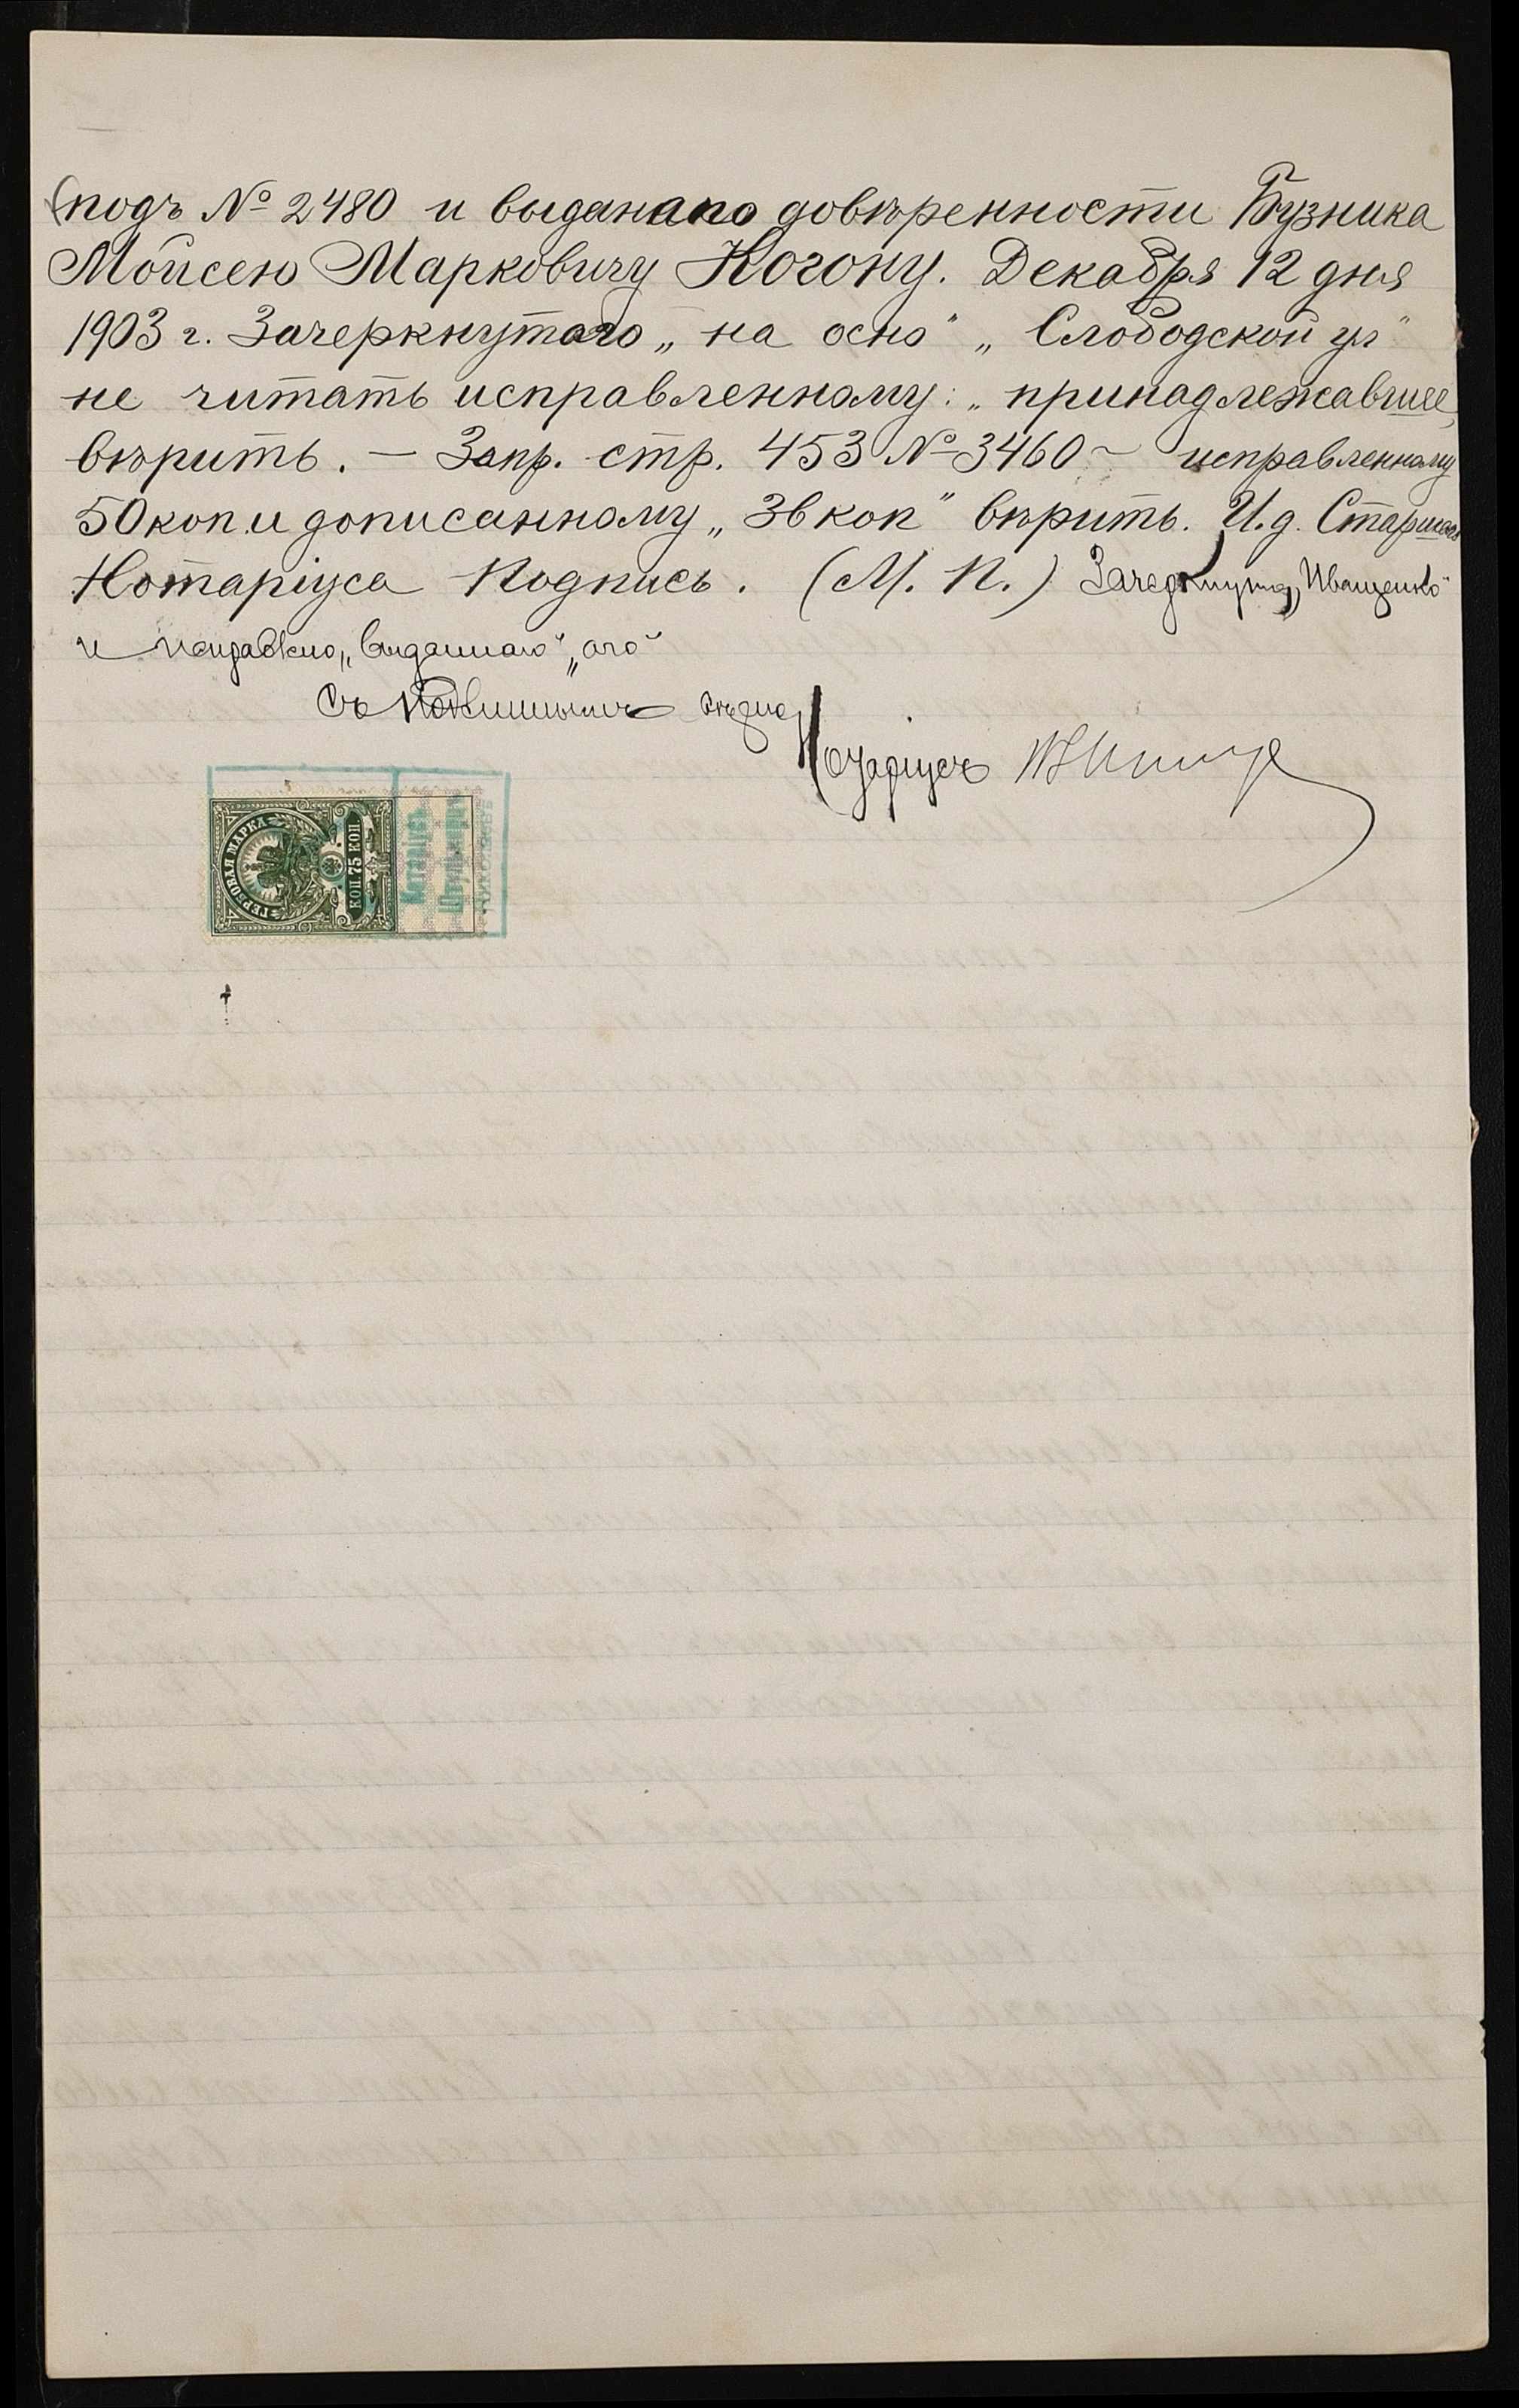 подъ № 2480 и выдана по довѣренности Бузника
Мойсею Марковичу Когону. Декабря 12 дня
1903 г. Зачеркнутаго „на осно“ „Слободской ул“
не читать исправленному: „принадлежавшее
вѣрить. — Запр. стр. 453 № 3460 ~ исправленному
50 коп. и дописанному „36 коп“ вѣрить. И. д. Старшаго
Нотаріуса Подпись. (М. П.) Зачеркнуто „Иващенко“
и исправлено „выданнаго“ „ого“
Съ подлиннымъ вѣрно
Нотаріусъ
ГЕРБОВАЯ МАРКА
КОП 75 КОП
Нотаріусъ